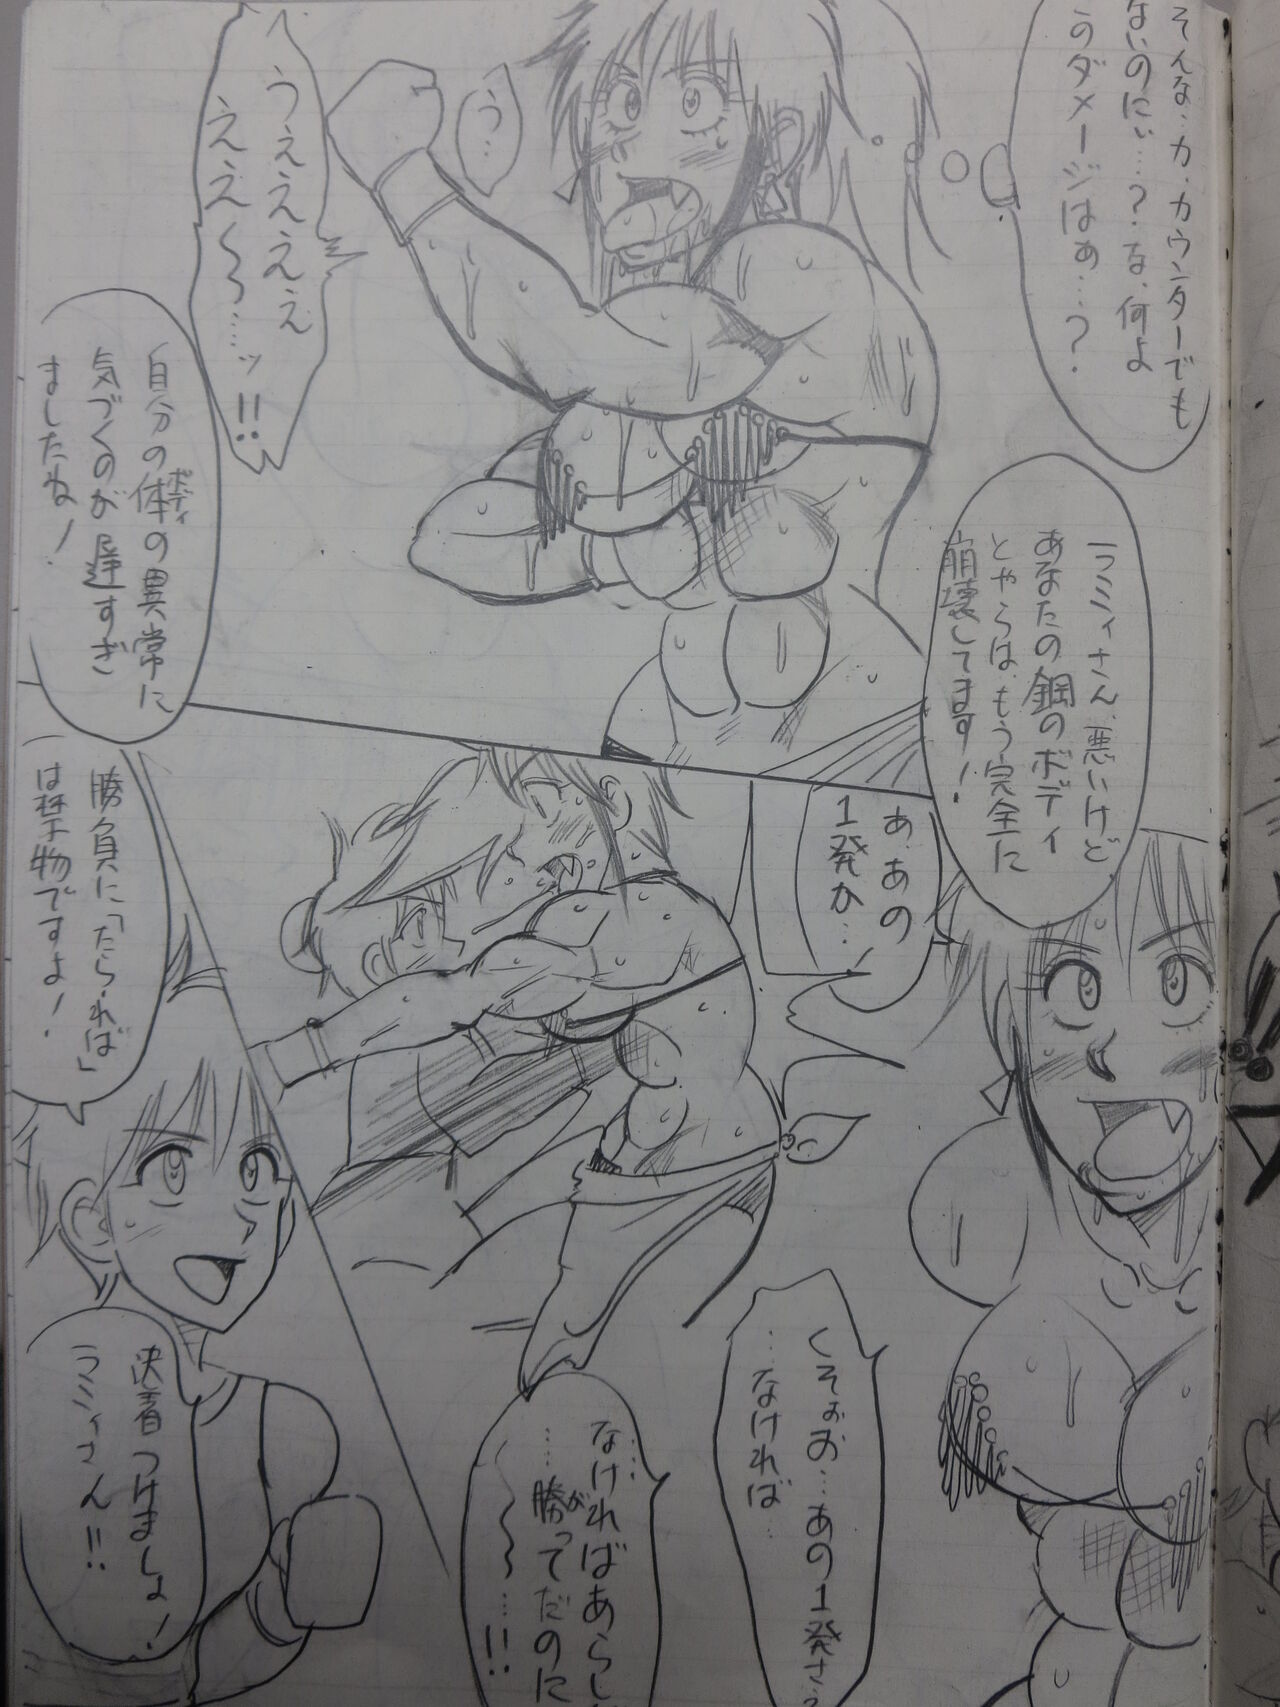 そんな、カ、カウンターでも
ないのにぃ…?な、何よ
のダメージはぁ…?
う…
うぇぇぇぇぇ
ええ〜〜…ッ!!
自分の体の異常に
ボディ
気づくのが遅すぎ
ましたね!
ラミィさん、悪いけど
あなたの鋼のボディ
とやらは、もう完全に
崩壊してます!
あ、あの
1発か…
くそぉお…あの1発さ
…なければ…
なければあらし
が
…勝ってだのに
〜〜…!!
勝負に「たられば」
は禁物ですよ!
決着つけましょ!
ラミィさん!!